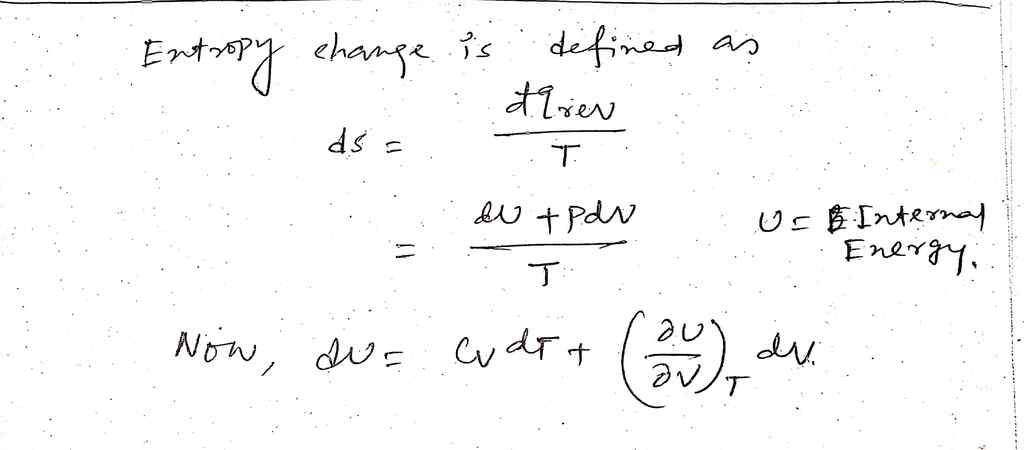 Entropy change is defined as
ds = đq_rev / T
= (dU + PdV) / T    U = Internal Energy.
Now, dU = C_V dT + (∂U/∂V)_T dV.